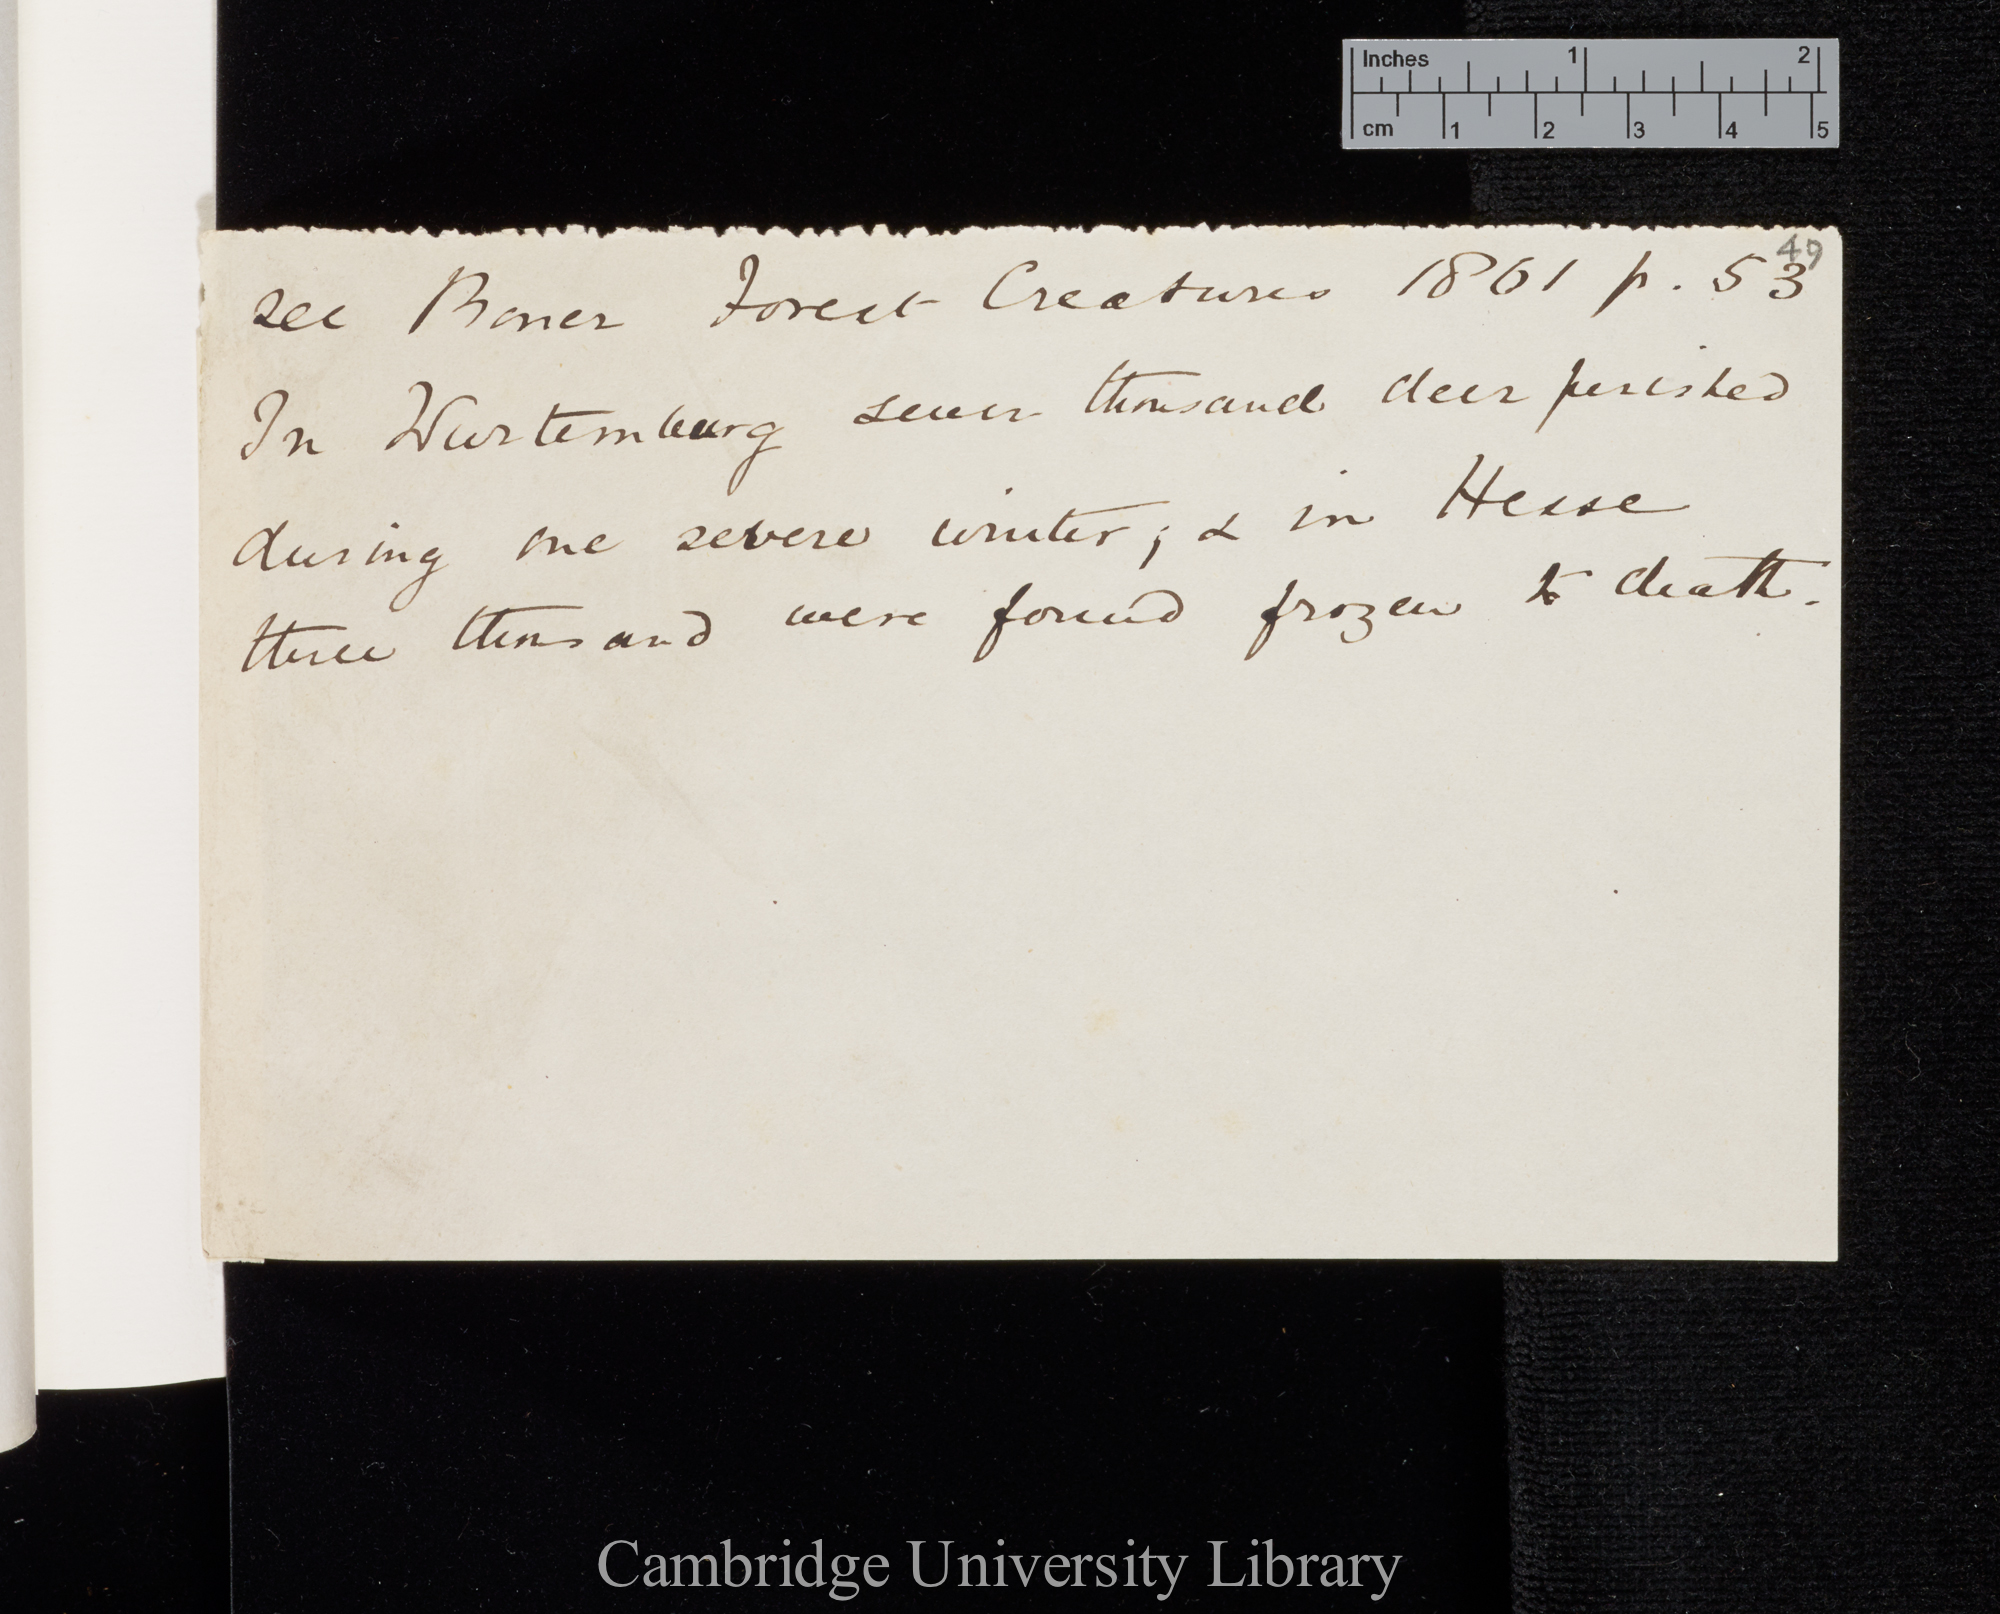 Inches 1 2
cm 1 2 3 4 5
49
see Boner Forest Creatures 1861 p. 53
In Wurtemburg seven thousand deer perished
during one severe winter; & in Hesse
three thousand were found frozen to death.
Cambridge University Library